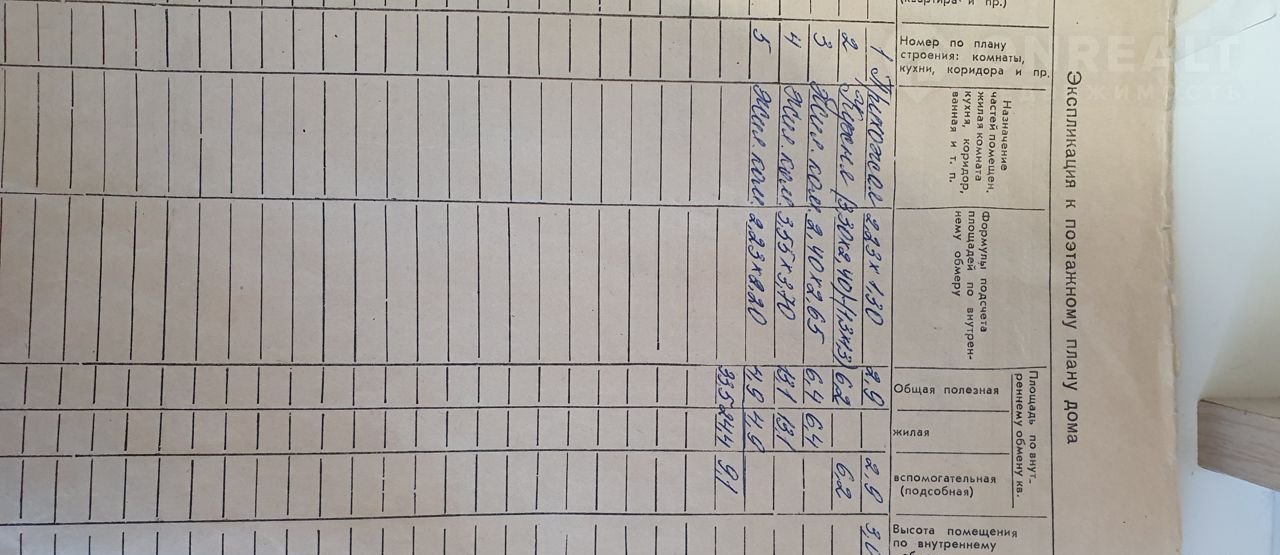 Экспликация к поэтажному плану дома
Номер по плану
строения: комнаты,
кухни, коридора и пр.
Назначение
частей помещен.
жилая комната
кухня, коридор,
ванная и т. п.
Формулы подсчета
площадей по внутрен-
нему обмеру
Площадь по внут-
реннему обмену кв.
Общая полезная
жилая
вспомогательная
(подсобная)
Высота помещения
по внутреннему
1 Прихожая 2,23×1.30 2,9 2,9
2 Кухня (3.30×2,40)-(1,3×1,3) 6.2 6.2
3 Жил. ком. 2,40×2,65 6,4 6.4
4 Жил. ком 3,55×3,70 13,1 13,1
5 Жил. ком. 2.23×2.20 4,9 4,9
33,5 24,4 9,1